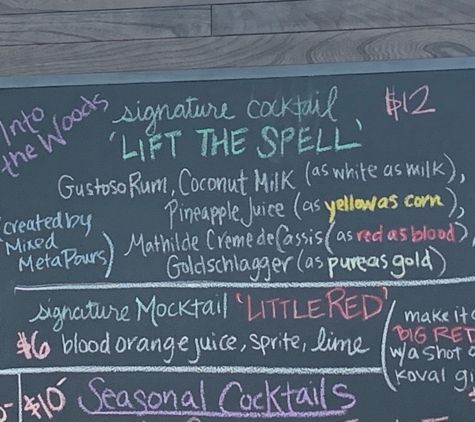 Into
the Woods
signature cocktail
$12
'LIFT THE SPELL'
Gustoso Rum, Coconut Milk (as white as milk),
Pineapple Juice (as yellow as corn),
Mathilde Creme de Cassis (as red as blood),
Goldschlagger (as pure as gold)
created by
Mixed
MetaPours)
signature Mocktail 'LITTLE RED'
$6 blood orange juice, sprite, lime
make it
BIG RED
w/a shot
Koval
$10
Seasonal Cocktails